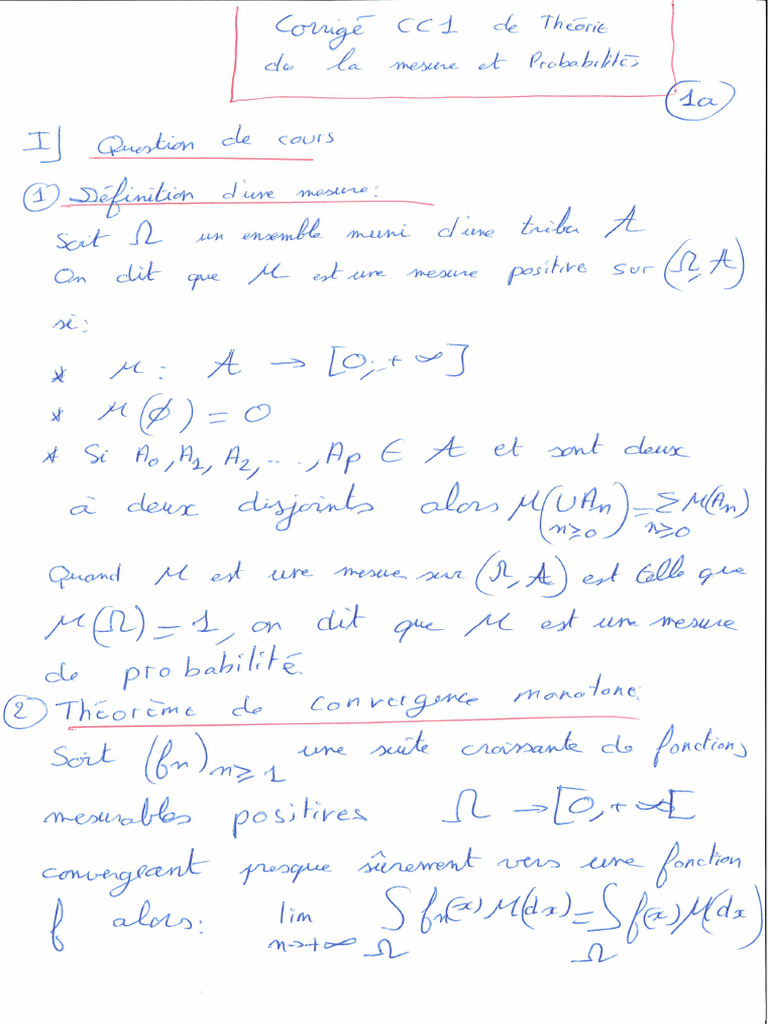 Corrigé CC1 de Théorie
de la mesure et Probabilités
1a
I] Question de cours
① Définition d'une mesure:
Soit Ω un ensemble muni d'une tribu A
On dit que μ est une mesure positive sur (Ω, A)
si:
* μ : A → [0,+∞]
* μ(∅) = 0
* Si A₀, A₁, A₂, ..., Ap ∈ A et sont deux
à deux disjoints alors μ(∪Aₙ) = Σ μ(Aₙ)
n≥0 n≥0
Quand μ est une mesure sur (Ω, A) est telle que
μ(Ω) = 1, on dit que μ est une mesure
de probabilité.
② Théorème de convergence monotone:
Soit (fₙ)n≥1 une suite croissante de fonctions
mesurables positives Ω → [0,+∞[
convergeant presque sûrement vers une fonction
f alors: lim ∫ fₙ(x) μ(dx) = ∫ f(x) μ(dx)
n→+∞ Ω Ω